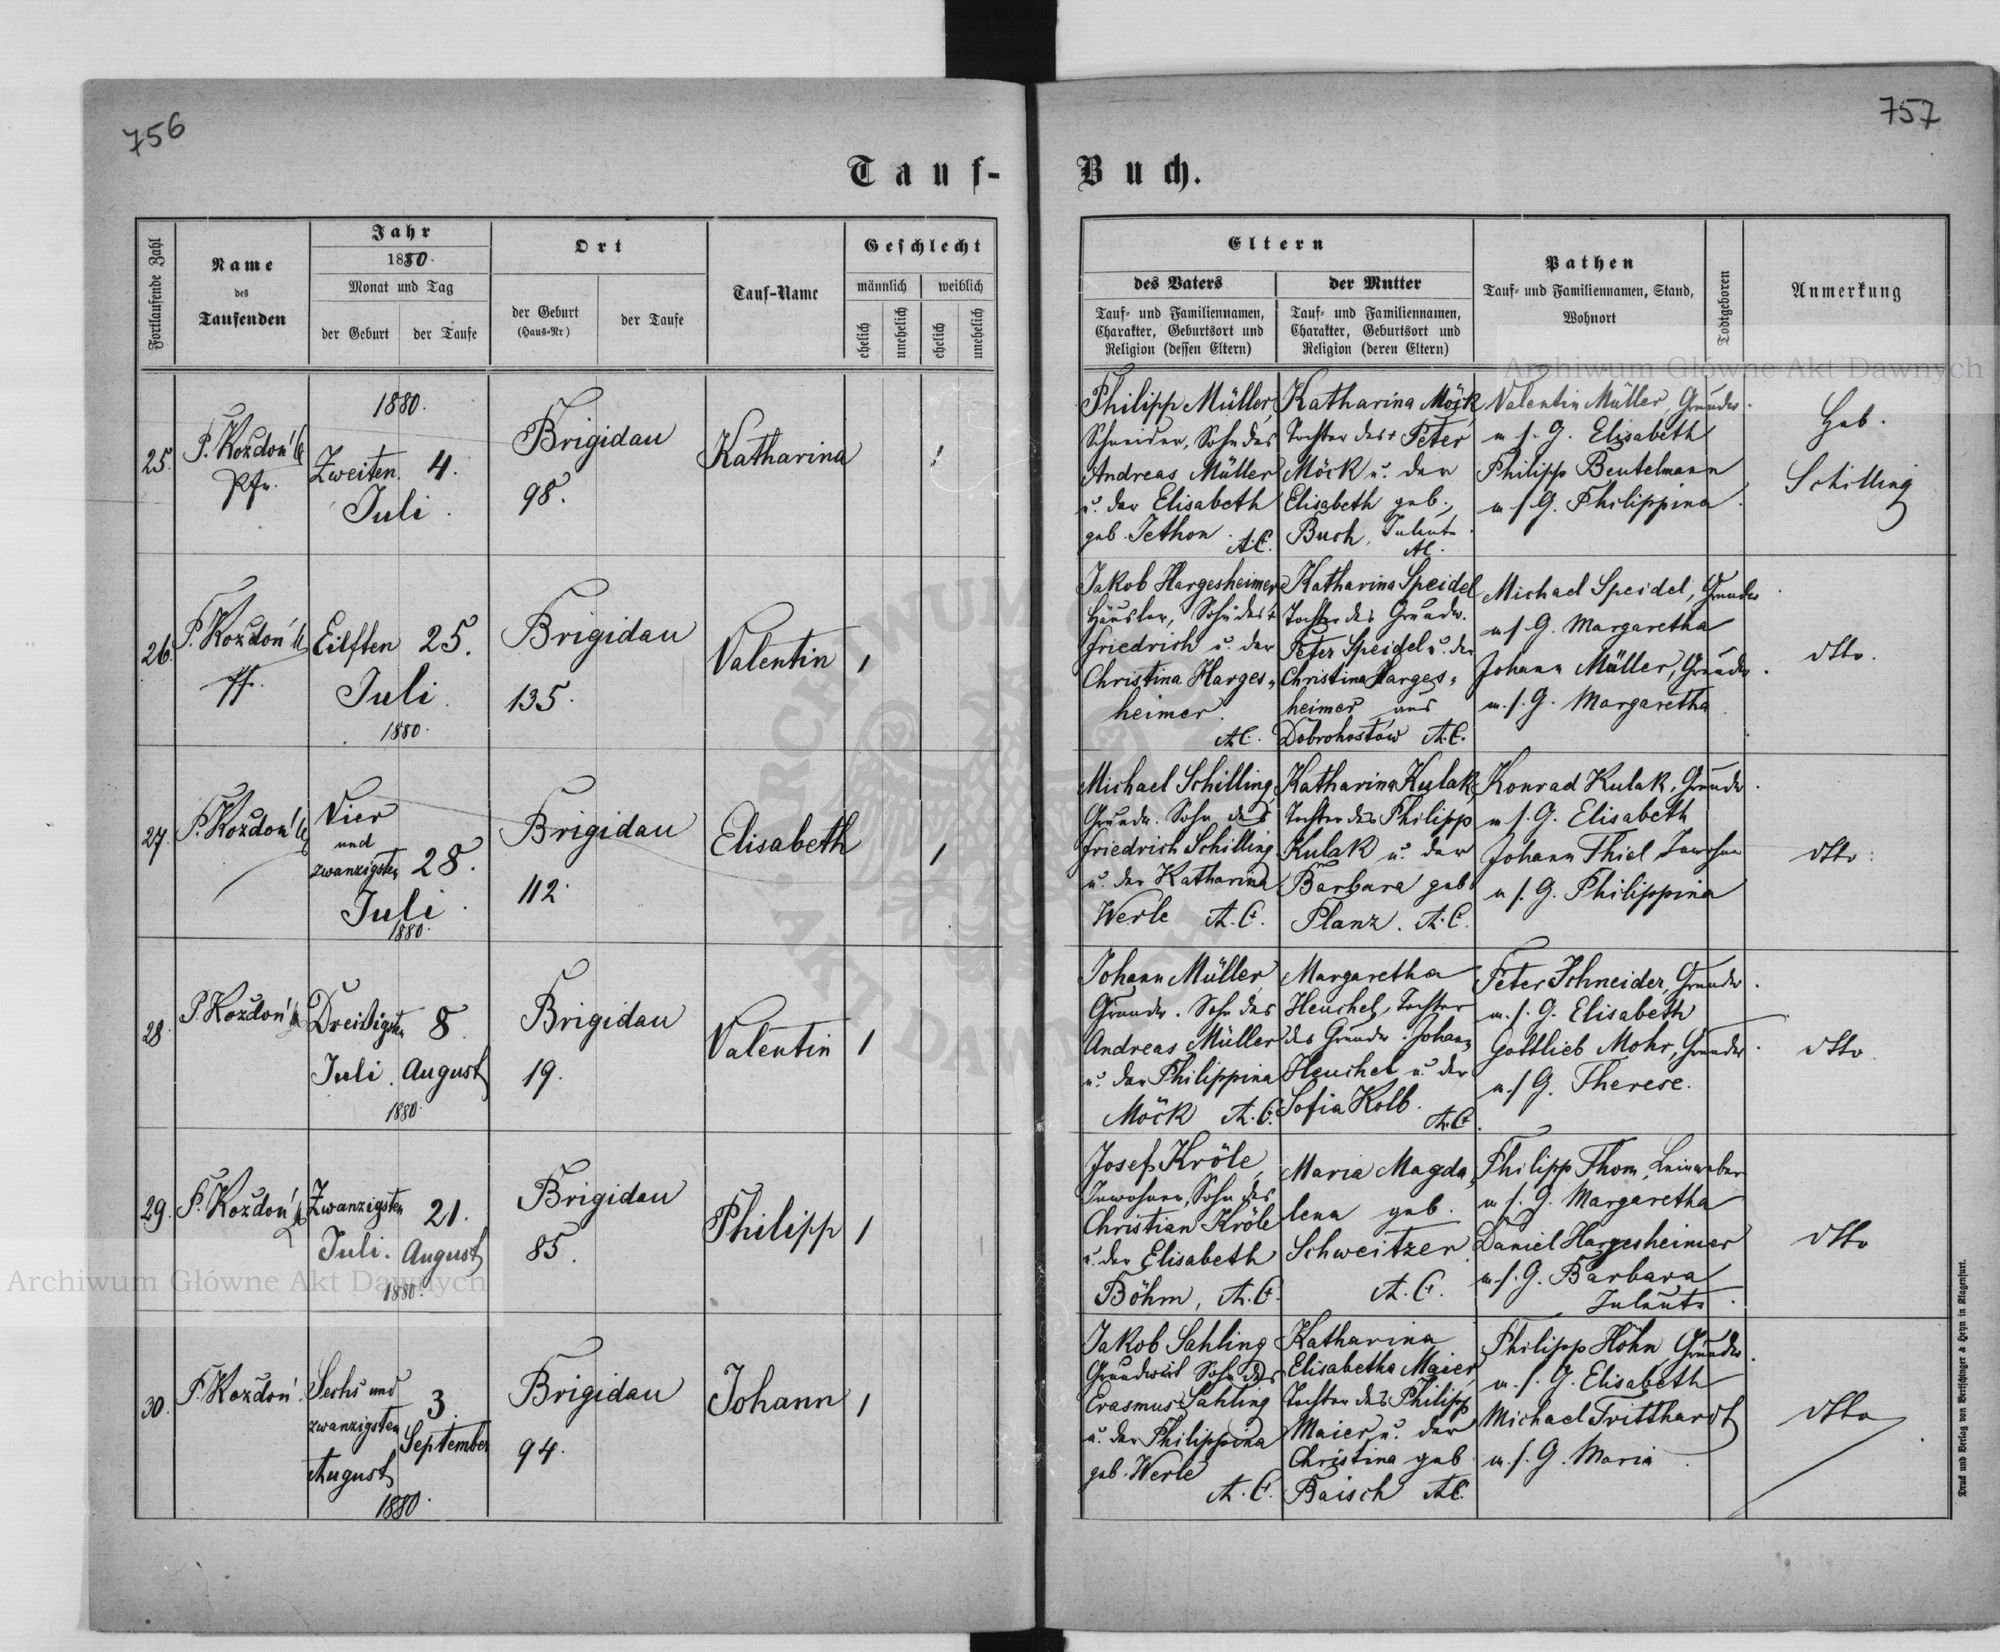 756
757
Tauf-
Buch.
Fortlaufende Zahl
Name
des
Taufenden
Jahr
1880.
Monat und Tag
der Geburt
der Taufe
Ort
der Geburt
(Haus-Nr)
der Taufe
Tauf-Name
Geschlecht
männlich
weiblich
ehelich
unehelich
ehelich
unehelich
Eltern
des Vaters
Tauf- und Familiennamen,
Charakter, Geburtsort und
Religion (dessen Eltern)
der Mutter
Tauf- und Familiennamen,
Charakter, Geburtsort und
Religion (deren Eltern)
Pathen
Tauf- und Familiennamen, Stand,
Wohnort
Todtgeboren
Anmerkung
25.
P. Kozdoń
Pfr.
1880.
Zweiten
Juli.
4.
Brigidau
98.
Katharina
1
Philipp Müller,
Schneider, Sohn des
Andreas Müller
u. der Elisabeth
geb. Jethon.
A.C.
Katharina Möck
Tochter des + Peter
Möck u. der
Elisabeth geb.
Buch,
A.C.
Valentin Müller, Grundw.
m s. G. Elisabeth
Philipp Beutelmann
m s. G. Philippina
Heb.
Schilling
26.
P. Kozdoń
Eilften
Juli.
1880.
25.
Brigidau
135.
Valentin
1
Jakob Hargesheimer
Häusler, Sohn des +
Friedrich u. der
Christina Harges=
heimer.
A.C.
Katharina Speidel
Tochter des Grundw.
Peter Speidel u. der
Christina Harges=
heimer aus
Dobrohostów A.C.
Michael Speidel, Grundw.
m s. G. Margaretha
Johann Müller, Grundw.
m. s. G. Margaretha
dtto.
27.
P. Kozdoń
Vier
und
zwanzigsten
Juli.
1880.
28.
Brigidau
112.
Elisabeth
1
Michael Schilling,
Grundw. Sohn des
Friedrich Schilling
u. der Katharina
Werle A.C.
Katharina Kulak,
Tochter des Philipp
Kulak u. der
Barbara geb.
Planz. A.C.
Konrad Kulak, Grundw.
m s. G. Elisabeth
Johann Thiel, Inwohner
m s. G. Philippina
dtto.
28.
P. Kozdoń
Dreißigsten
Juli.
8.
August
1880.
Brigidau
19.
Valentin
1
Johann Müller,
Grundw. Sohn des
Andreas Müller
u. der Philippina
Möck A.C.
Margaretha
Heuchel, Tochter
des Grundw. Johann
Heuchel u. der
Sofia Kolb.
A.C.
Peter Schneider, Grundw.
m. s. G. Elisabeth
Gottlieb Mohr, Grundw.
m. s. G. Therese.
dtto
29.
P. Kozdoń
Zwanzigsten
Juli.
21.
August
1880.
Brigidau
85.
Philipp
1
Josef Kröle,
Inwohner, Sohn des
Christian Kröle
u. der Elisabeth
Böhm, A.C.
Maria Magda=
lena geb.
Schweitzer.
A.C.
Philipp Thom, Leinweber
m s. G. Margaretha
Daniel Hargesheimer
m. s. G. Barbara
dtto
30.
P. Kozdoń.
Sechs und
zwanzigsten
August
1880.
3.
September
Brigidau
94.
Johann
1
Jakob Sahling,
Grundwirt Sohn des
Erasmus Sahling
u. der Philippina
geb. Werle
A.C.
Katharina
Elisabetha Maier,
Tochter des Philipp
Maier u. der
Christina geb.
Baisch A.C.
Philipp Höhn Grundw.
m. s. G. Elisabeth
Michael Tritthardt
m. s. G. Maria.
dtto
Druck und Verlag von Bertschinger & Heyn in Klagenfurt.
Archiwum Główne Akt Dawnych
Archiwum Główne Akt Dawnych